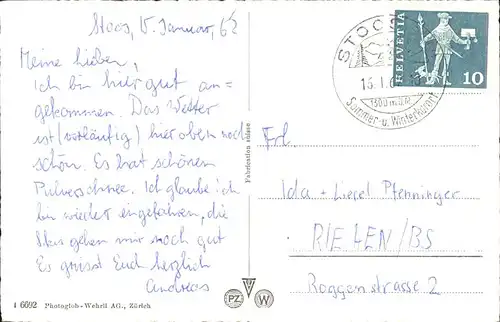 Stoos, 15. Januar, 62
Meine Lieben,
Ich bin hier gut an=
gekommen. Das Wetter
ist (vorläufig) hier oben noch
schön. Es hat schönen
Pulverschnee. Ich glaube ich
bin wieder eingefahren, die
Skis gehen mir noch gut
Es grüsst Euch herzlich
Andreas
4 6692 Photoglob-Wehrli AG., Zürich
Fabrication suisse
PZ W
STOOS
15.1.6
1300 m.ü.M.
Sommer- u. Winterkurort
HELVETIA
10
Frl.
Ida + Liesel Pfenninger
RIEHEN/BS
Roggenstrasse 2